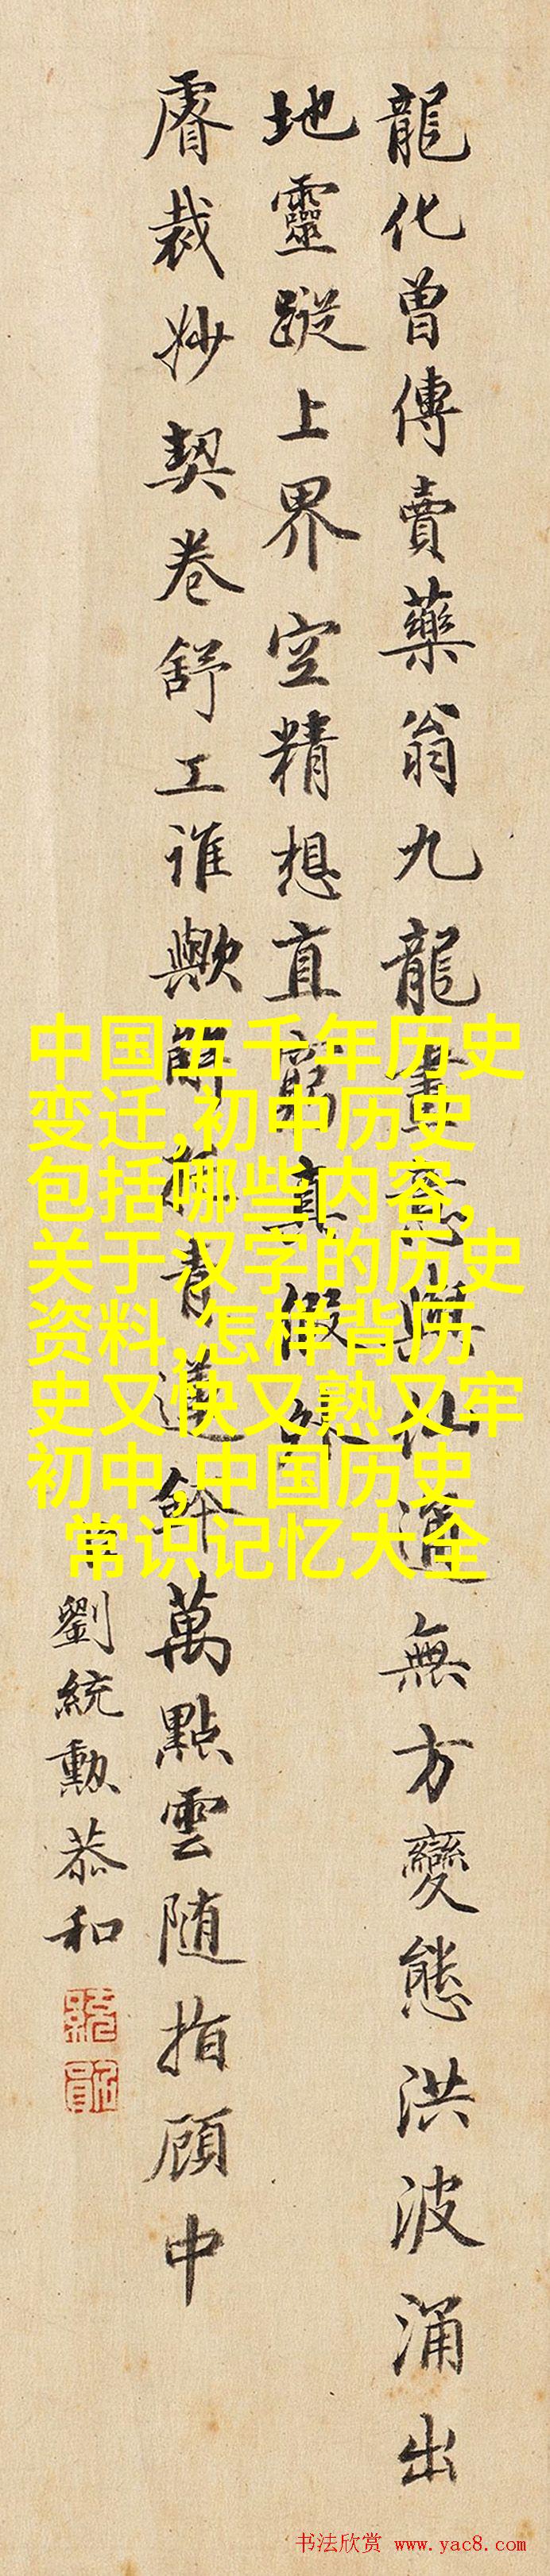 龍化曾傳賣藥翁九龍畫意與仙通無方變態洪波涌出
地靈蹤上界空精想直窮真假外
睿裁妙契卷舒工誰歟解書餘萬點雲随指顧中
劉統勳恭和
中国五千年历史
变迁,初中历史
包括哪些内容,
关于汉字的历史
资料,怎样背历
史又快又熟又牢
初中,中国历史
常识记忆大全
书法欣赏 www.yac8.com